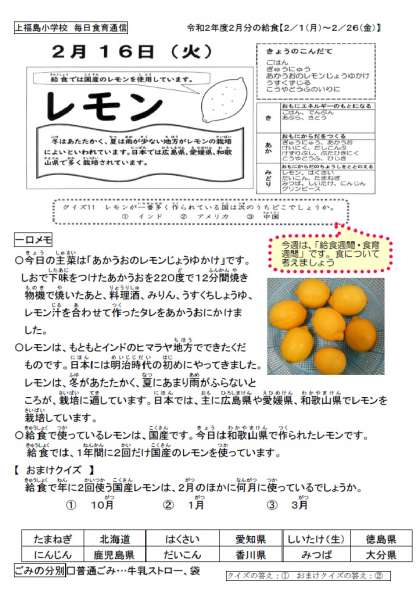 上福島小学校　毎日食育通信
令和２年度２月分の給食【２／１（月）～２／２６（金）】
２月１６日（火）
給食では国産のレモンを使用しています。
レモン
冬はあたたかく、夏は雨が少ない地方がレモンの栽培
によいといわれています。日本では広島県、愛媛県、和歌
山県で多く栽培されています。
きょうのこんだて
ごはん
ぎゅうにゅう
あかうおのレモンじょうゆかけ
うすくずじる
こうやどうふのいりに
き
おもにエネルギーのもとになる
ごはん、でんぷん
あぶら、さとう
あか
おもにからだをつくる
ぎゅうにゅう、あかうお
けずりぶし、
こうやどうふ、ひじき
みどり
おもにからだのちょうしをととのえる
レモン、はくさい
だいこん、たまねぎ
みつば、しいたけ、にんじん
グリンピース
クイズ１１　レモンが一番多く作られている国は次のうちどこでしょうか。
①　インド　②　アメリカ　③　中国
一口メモ
今週は、「給食週間・食育
週間」です。食について
考えましょう
○今日の主菜は「あかうおのレモンじょうゆかけ」です。
しおで下味をつけたあかうおを２２０度で１２分間焼き
物機で焼いたあと、料理酒、みりん、うすくちしょうゆ、
レモン汁を合わせて作ったタレをあかうおにかけま
した。
○レモンは、もともとインドのヒマラヤ地方でできたくだ
ものです。日本には明治時代の初めにやってきました。
レモンは、冬があたたかく、夏にあまり雨がふらないと
ころが、栽培に適しています。日本では、主に広島県や愛媛県、和歌山県でレモンを
栽培しています。
○給食で使っているレモンは、国産です。今日は和歌山県で作られたレモンです。
給食では、１年間に２回だけ国産のレモンを使っています。
【　おまけクイズ　】
給食で年に２回使う国産レモンは、２月のほかに何月に使っているでしょうか。
①　１０月　②　１月　③　３月
たまねぎ　北海道　はくさい　愛知県　しいたけ（生）　徳島県
にんじん　鹿児島県　だいこん　香川県　みつば　大分県
ごみの分別　□普通ごみ…牛乳ストロー、袋
クイズの答え：①　おまけクイズの答え：②